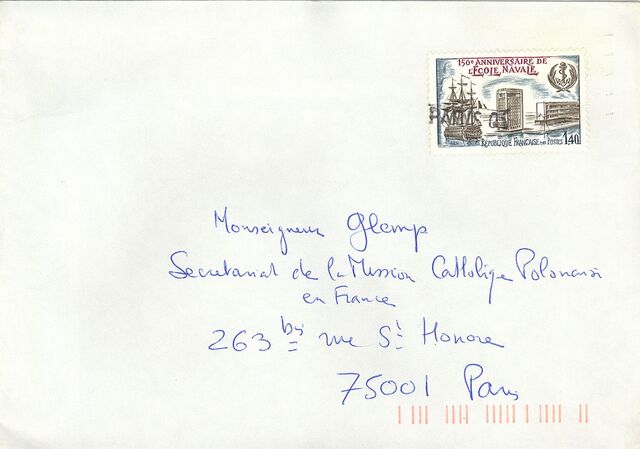 150e ANNIVERSAIRE DE
L'ECOLE NAVALE
PARIS 01
REPUBLIQUE FRANCAISE POSTES 1,40
Monseigneur Glemp
Secretariat de la Mission Catholique Polonaise
en France
263 bis rue St Honore
75001 Paris